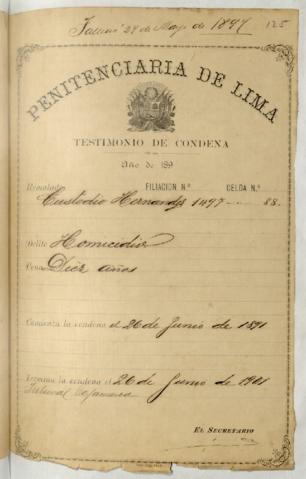 Falleció 28 de Mayo de 1897 125
PENITENCIARIA DE LIMA
TESTIMONIO DE CONDENA
Año de 189
Rematado FILIACION N.º CELDA N.º
Custodio Hernandez 1497 88.
Delito Homicidio
Pena Diez años
Comienza la condena el 26 de Junio de 1891
Termina la condena el 26 de Junio de 1901
Tribunal Cajamarca
EL SECRETARIO